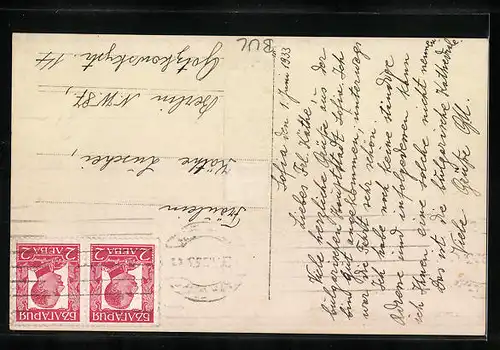 BUL
Sofia den 1. Juni 1933
Liebes Frl. Käthe!
Viele herzliche Grüße aus der
bulgarischen Hauptstadt Sofia. Ich
bin gut angekommen, unterwegs
war die Fahrt sehr schön.
Ich habe noch keine ständige
Adresse und infolgedessen kann
ich Ihnen eine solche nicht nennen
Das ist die bulgarische Kathedrale
Viele Grüße
Fräulein
Käthe Lüschei,
Berlin N.W. 87,
Gotzkowskystr. 17
2 ЛЕВА 2
БЪЛГАРИЯ
2 ЛЕВА 2
БЪЛГАРИЯ